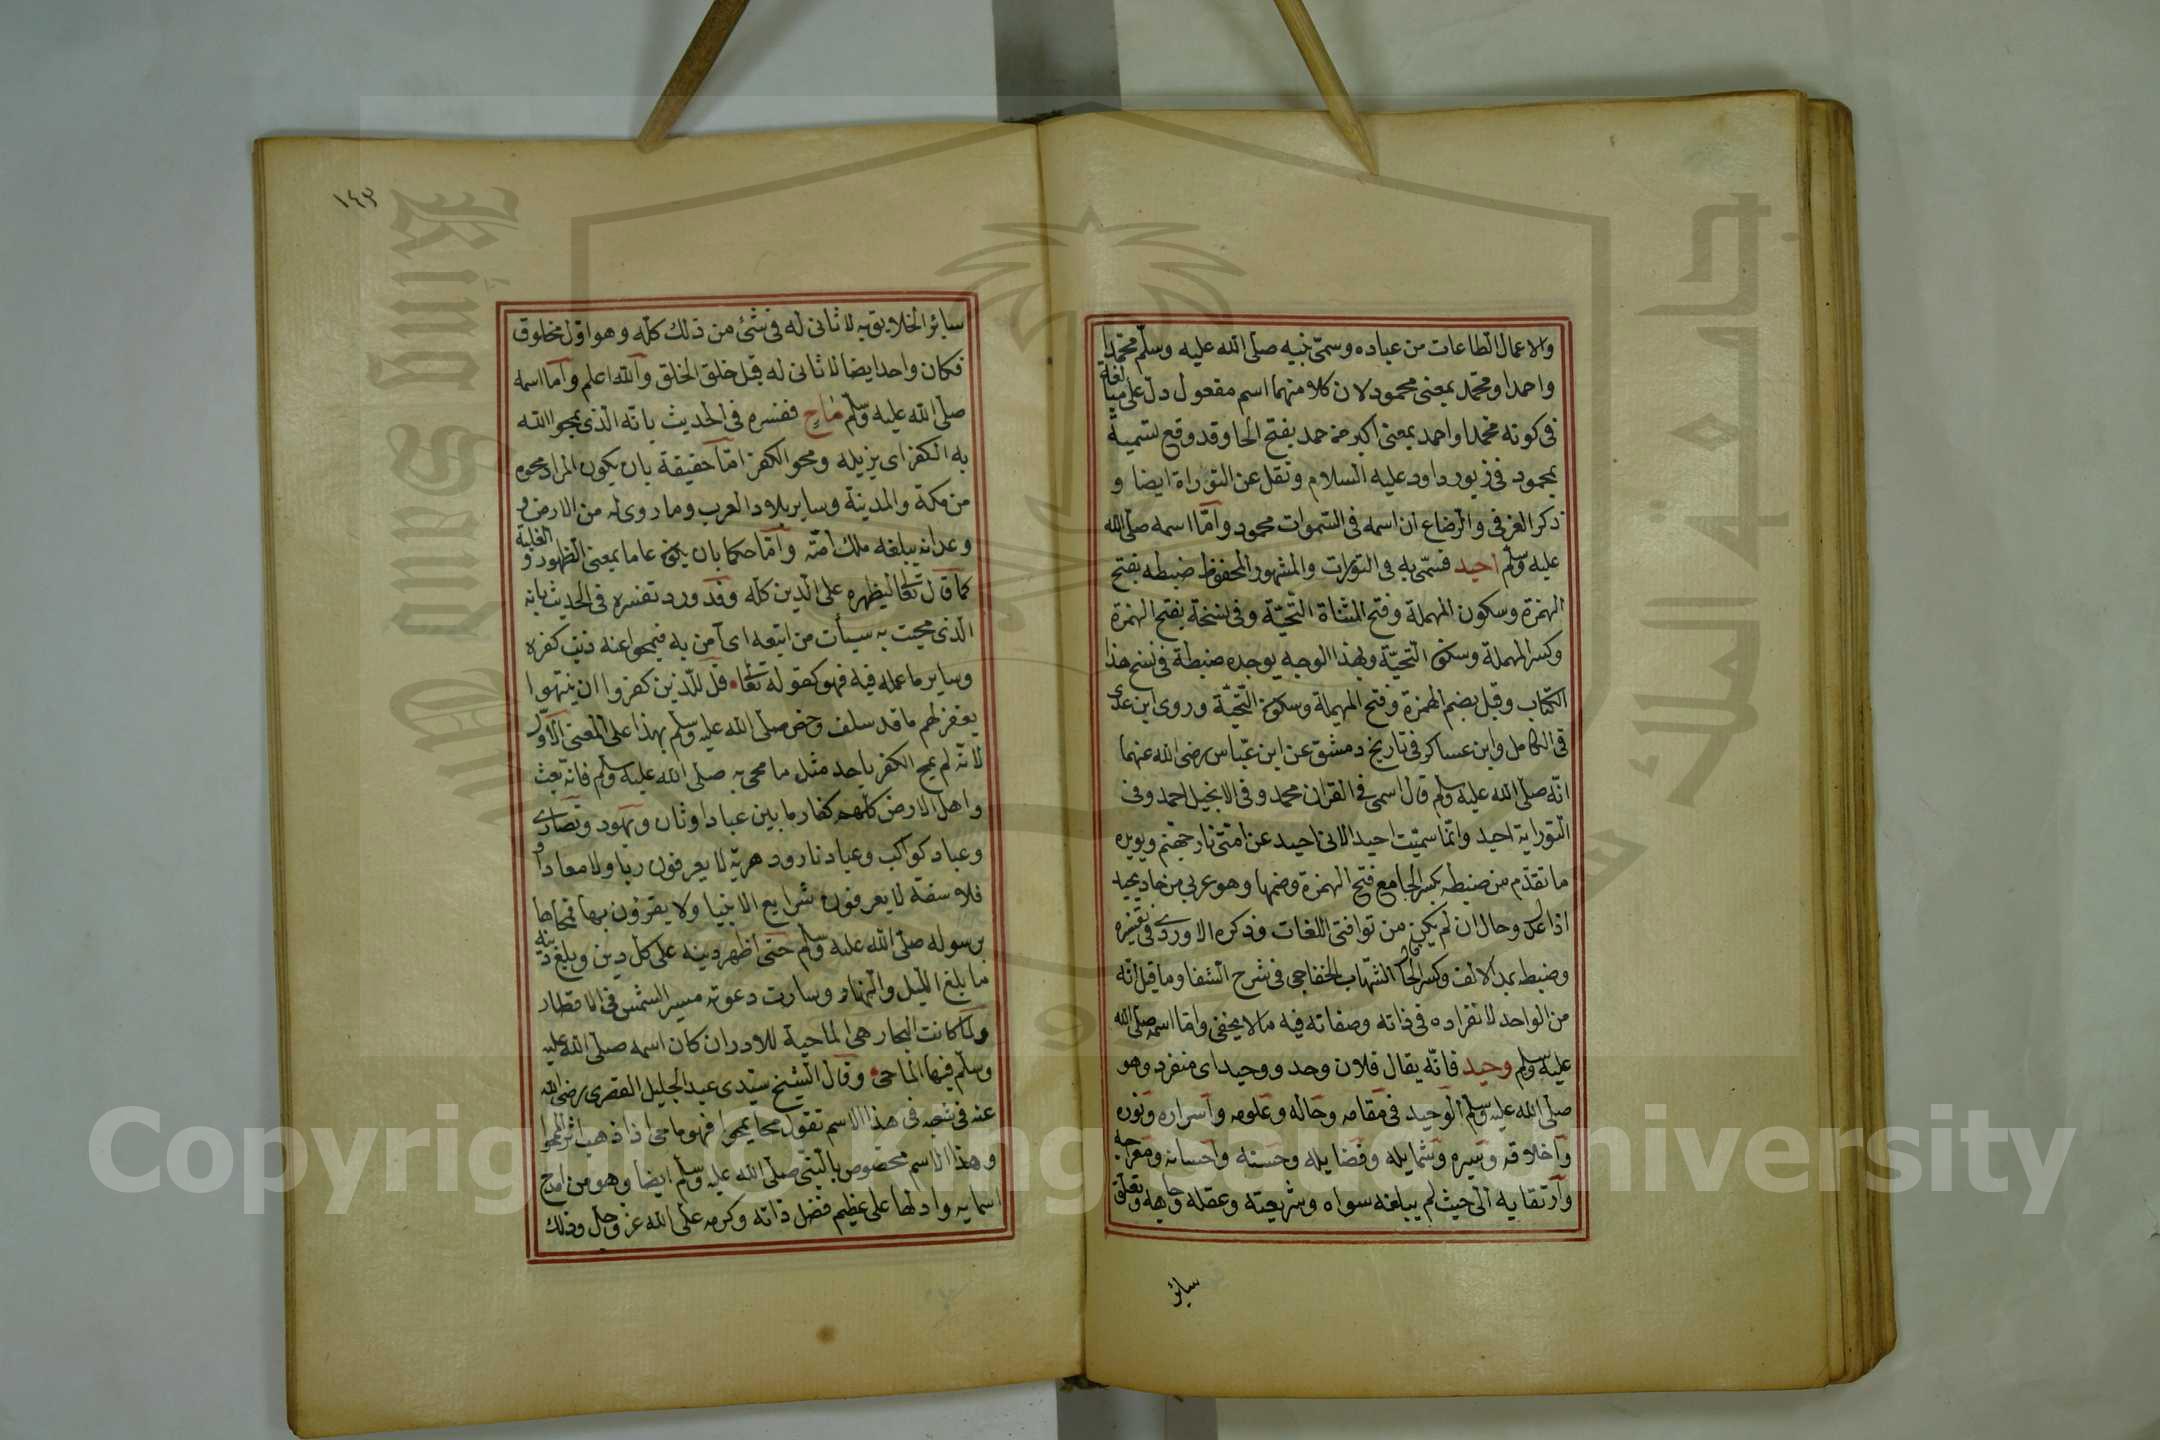 والاعمال الطاعات من عباده وسمى نبيه صلى الله عليه وسلم محمدا
واحمدا ومحمد بمعنى محمود لان كلا منهما اسم مفعول دل على مبالغة
فى كونه محمدا واحمد بمعنى اكبر من حمد بفتح الحا وقد وقع تسمية
بمحمود فى زبور داود عليه السلام ونقل عن التوراة ايضا و
ذكر العزفى والرضاع ان اسمه فى السموات محمود واما اسمه صلى الله
عليه وسلم احيد فسمى به فى التورات والمشهور المحفوظ ضبطه بفتح
الهمزة وسكون المهملة وفتح المثناة التحتية وفى نسخة بفتح الهمزة
وكسر المهملة وسكون التحتية وبهذا الوجه يوجد ضبطة فى نسخ هذا
الكتاب وقيل بضم الهمزة وفتح المهملة وسكون التحتية وروى ابن عدى
فى الكامل وابن عساكر فى تاريخ دمشق عن ابن عباس رضى الله عنهما
انه صلى الله عليه وسلم قال اسمى فى القران محمد وفى الانجيل احمد وفى
التوراية احيد وانما سميت احيد لانى احيد عن امتى نار جهنم ويويده
ما تقدم من ضبطه بكسر الحا مع فتح الهمزة وضمها وهو عربى من حاد يحيد
اذا عدل وحال ان لم يكن من توافق اللغات وذكره الماوردى فى تفسيره
وضبط بمد الالف وكسر الحا قاله الشهاب الخفاجى فى شرح الشفا وما قيل انه
من الواحد لانفراده فى ذاته وصفاته فيه ما لا يخفى واما اسمه صلى الله
عليه وسلم وحيد فانه يقال فلان وحد ووحيد اى منفرد وهو
صلى الله عليه وسلم الوحيد فى مقامه وحاله وعلومه واسراره ونوره
واخلاقه وسيره وشمايله وفضايله وحسنه واحسانه ومعراجه
وارتقايه الى حيث لم يبلغه سواه وشريعته وعقله وجاهه وتعلق
سائر
١٤٣
سائر الخلايق به لا ثانى له فى شئ من ذلك كله وهو اول مخلوق
فكان واحدا يضا لا ثانى له قبل خلق الخلق والله اعلم واما اسمه
صلى الله عليه وسلم ماح ففسره فى الحديث بانه الذى يمحوا الله
به الكفر اى يزيله ومحو الكفر اما حقيقة بان يكون المراد محوه
من مكة والمدينة وساير بلاد العرب وما روى له من الارض و
وعد انه يبلغه ملك امته واما حكما بان يكون عاما بمعنى الظهور والغلبة
كما قال تعالى ليظهره على الدين كله وقد ورد تفسره فى الحديث بانه
الذى محيت به سيأت من اتبعه اى آمن به فيمحوا عنه ذنب كفره
وساير ما عمله فيه فهو كقوله تعالى قل للذين كفروا ان ينتهوا
يغفر لهم ما قد سلف وخص صلى الله عليه وسلم بهذا على المعنى الاول
لانه لم يمح الكفر باحد مثل ما محى به صلى الله عليه وسلم فانه بعث
واهل الارض كلهم كفار ما بين عباد اوثان ويهود ونصارى
وعباد كواكب وعباد نار ودهرية لا يعرفون ربا ولا معادا و
فلاسفة لا يعرفون شرايع الانبيا ولا يقرون بها فمحاها
برسوله صلى الله عليه وسلم حتى اظهر دينه على كل دين وبلغ دينه
ما بلغ الليل والنهار وسارت دعوته مسير الشمس فى الاقطار
ولما كانت البحار هى الماحية للادران كان اسمه صلى الله عليه
وسلم فيها الماحى وقال الشيخ سيدى عبد الجليل القصرى رضى الله
عنه فى شعبه فى هذا الاسم تقول محا يمحوا فهو ماحى اذا ذهب اثر المحوا
وهذا الاسم مخصوص بالنبى صلى الله عليه وسلم ايضا وهو من امدح
اسمايه وادلها على عظيم فضل ذاته وكرمه على الله عز وجل وذلك
King Saud University
جامعة الملك سعود
Copyright © King Saud University